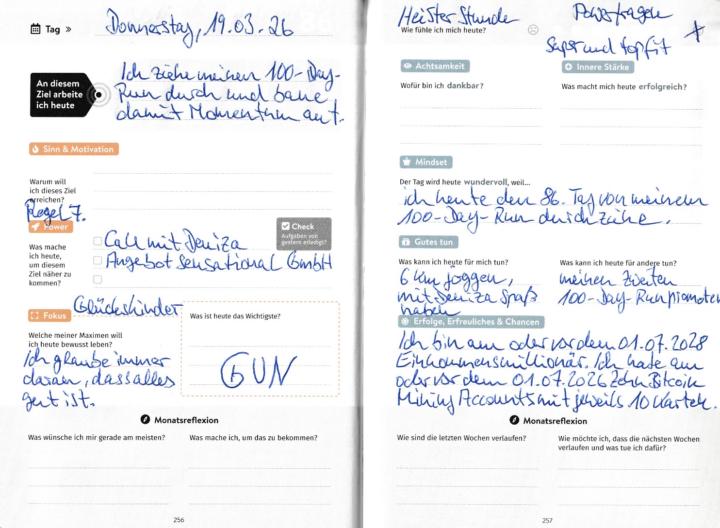 Tag »
Donnerstag, 19.03.26
An diesem
Ziel arbeite
ich heute
Ich ziehe meinen 100-Day-
Run durch und baue
damit Momentum auf.
Sinn & Motivation
Warum will
ich dieses Ziel
erreichen?
Regel 7.
Power
Was mache
ich heute,
um diesem
Ziel näher zu
kommen?
Check
Aufgaben von
gestern erledigt?
Call mit Deniza
Angebot Sensational GmbH
Fokus
Glückskinder
Welche meiner Maximen will
ich heute bewusst leben?
Ich glaube immer
daran, dass alles
gut ist.
Was ist heute das Wichtigste?
GUN
Monatsreflexion
Was wünsche ich mir gerade am meisten?
Was mache ich, um das zu bekommen?
256
Meister Stunde
Powerfragen
Wie fühle ich mich heute?
Super und topfit
Achtsamkeit
Wofür bin ich dankbar?
Innere Stärke
Was macht mich heute erfolgreich?
Mindset
Der Tag wird heute wundervoll, weil...
ich heute den 86. Tag von meinem
100-Day-Run durchziehe.
Gutes tun
Was kann ich heute für mich tun?
6 km joggen,
mit Deniza Spaß
haben
Was kann ich heute für andere tun?
meinen zweiten
100-Day-Run promoten
Erfolge, Erfreuliches & Chancen
Ich bin am oder vor dem 01.07.2028
Einkommensmillionär. Ich habe am
oder vor dem 01.07.2026 zehn Bitcoin
Mining Accounts mit jeweils 10 Karten.
Monatsreflexion
Wie sind die letzten Wochen verlaufen?
Wie möchte ich, dass die nächsten Wochen
verlaufen und was tue ich dafür?
257